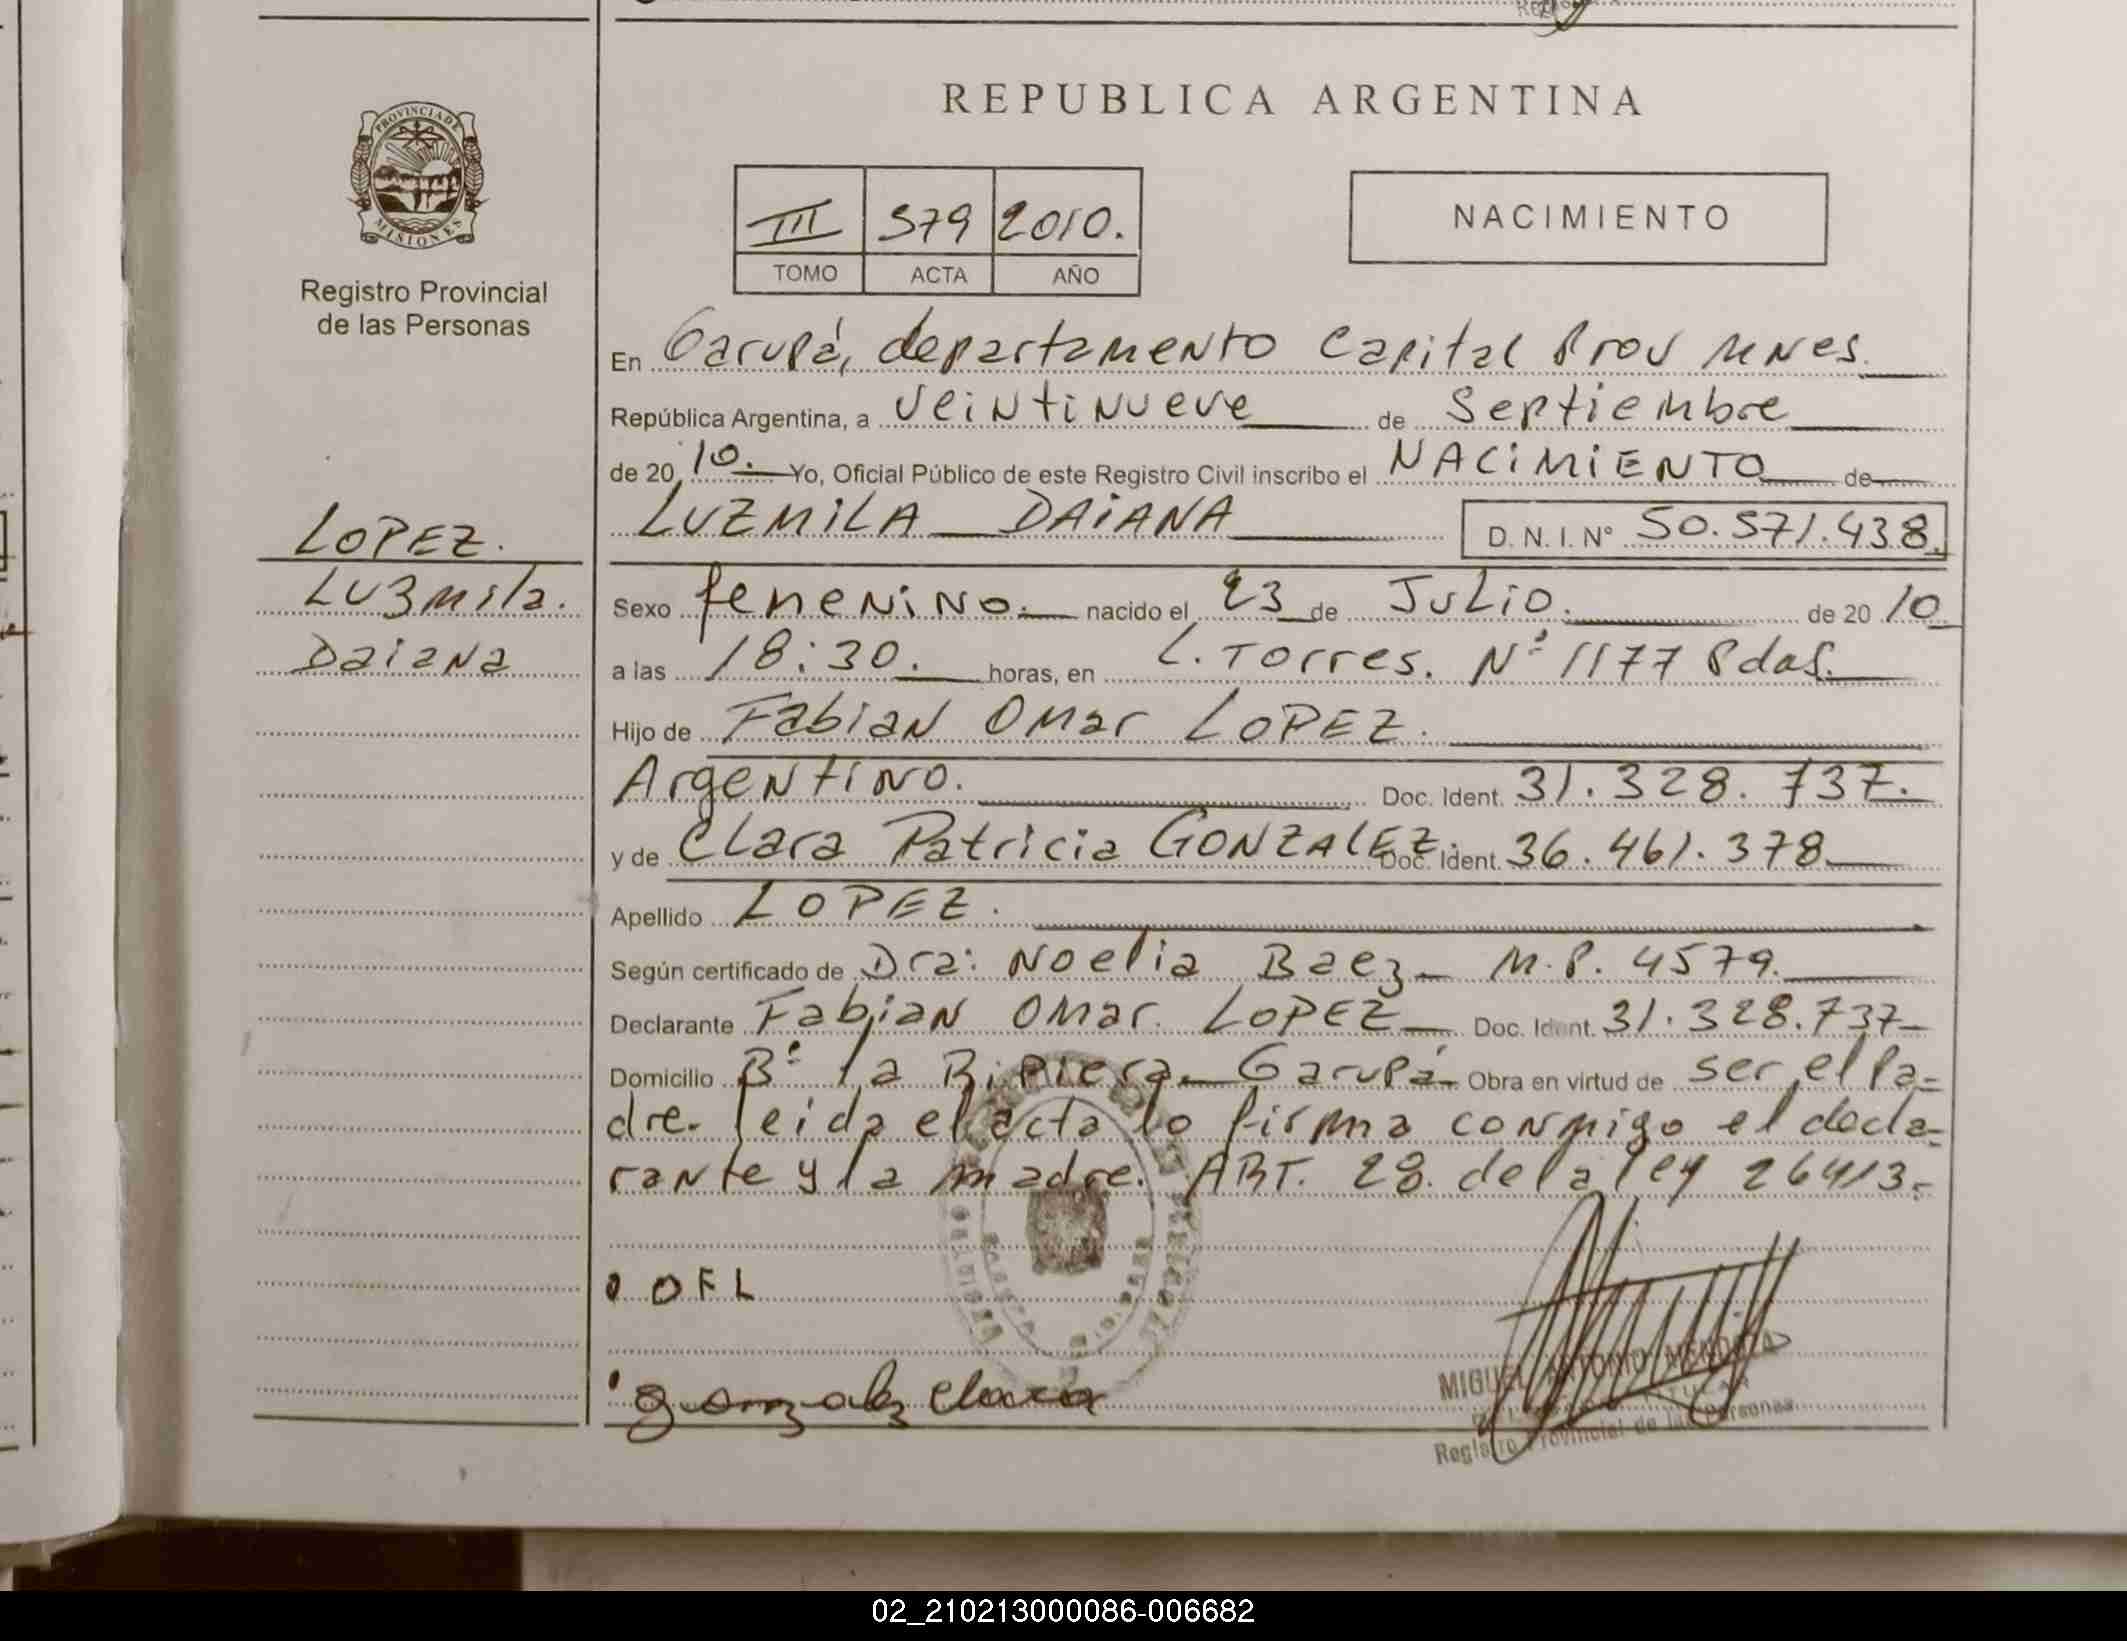 REPUBLICA ARGENTINA
PROVINCIA DE
MISIONES
Registro Provincial
de las Personas
III 579 2010.
TOMO ACTA AÑO
NACIMIENTO
LOPEZ.
Luzmila.
Daiana
En Garupá, departamento Capital Prov Mnes.
República Argentina, a veintinueve de Septiembre
de 20 10. Yo, Oficial Público de este Registro Civil inscribo el NACIMIENTO de
LUZMILA DAIANA D.N.I. Nº 50.571.438.
Sexo femenino. nacido el 23 de Julio. de 20 10
a las 18:30. horas, en L. Torres. Nº 1177 Pdas.
Hijo de Fabian Omar LOPEZ.
Argentino. Doc. Ident. 31.328.737.
y de Clara Patricia GONZALEZ. Doc. Ident. 36.461.378
Apellido LOPEZ.
Según certificado de Dra: Noelia Baez M.P. 4579.
Declarante Fabian Omar LOPEZ Doc. Ident. 31.328.737
Domicilio Bº la Ribiera Garupá Obra en virtud de ser el Pa=
dre. leida el acta lo firma conmigo el decla-
rante y la madre. ART. 28. de la ley 26413.
OFL
gonzalez clara
MIGUEL ANTONIO MENDOZA
Registro Provincial de las Personas
02_210213000086-006682